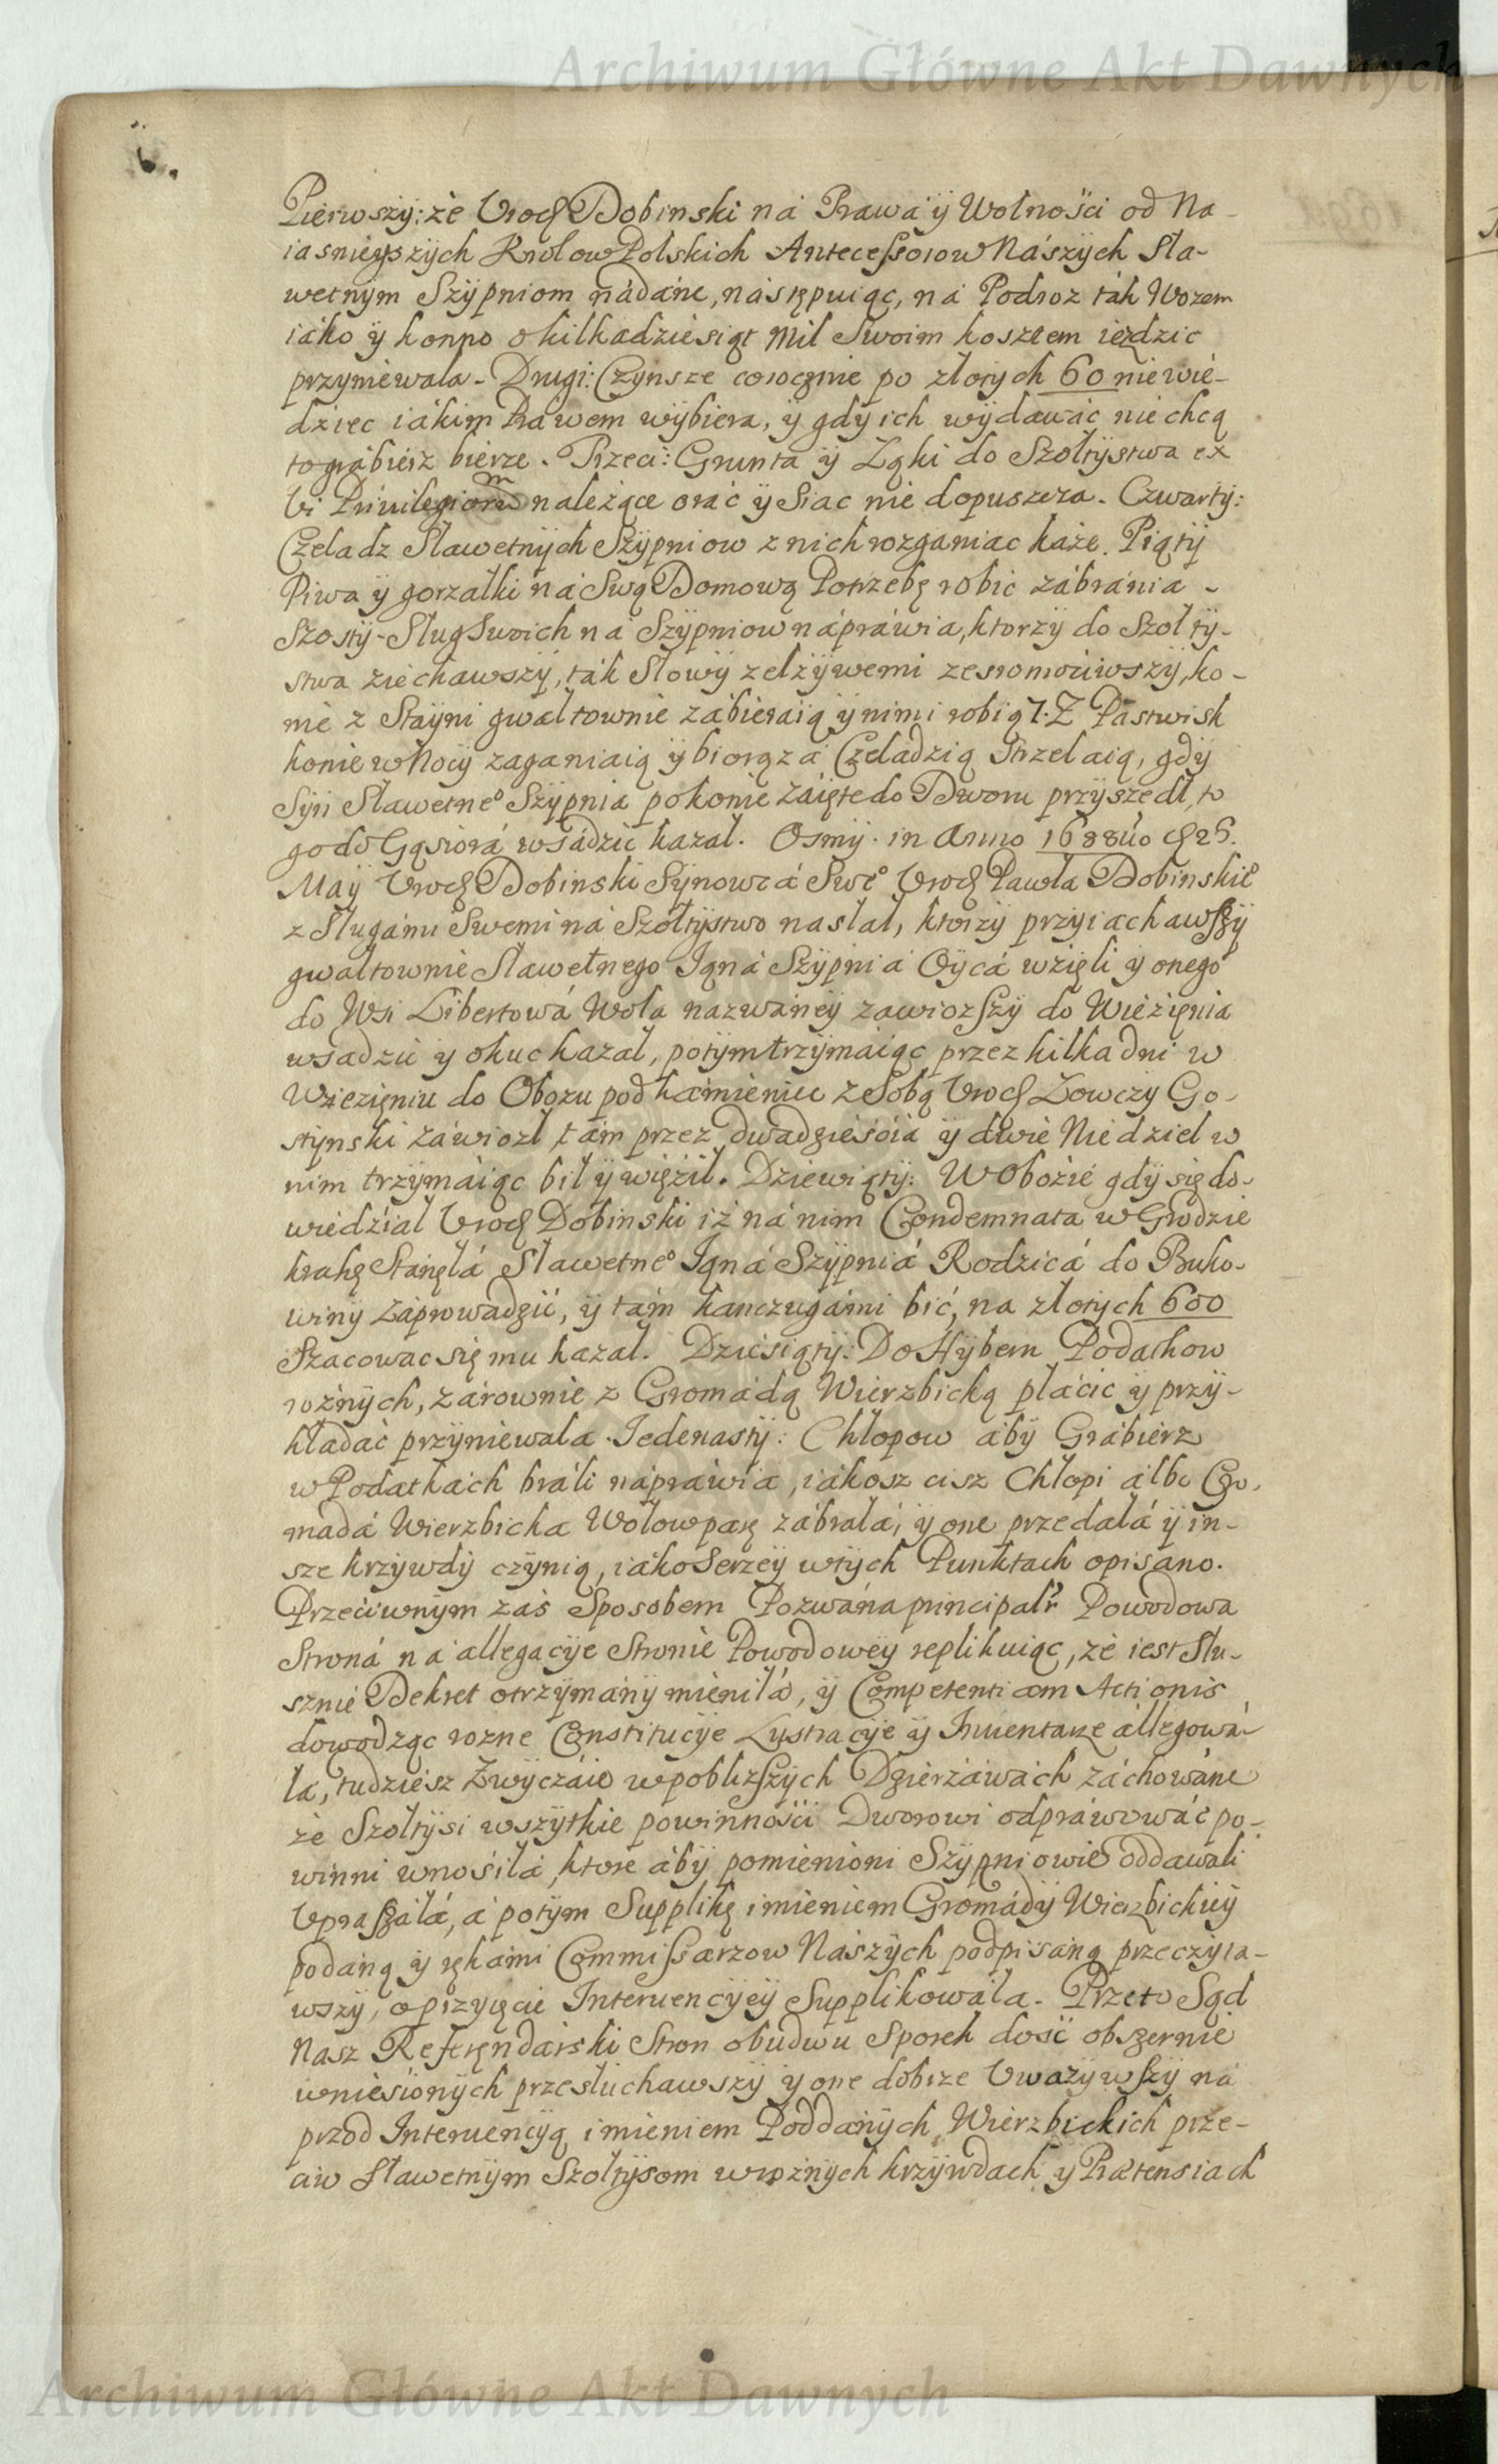 Archiwum Główne Akt Dawnych
6.
Pierwszy: że Vroḍ Dobinski ná Prawa ÿ Wolnosci od Na-
iasnieyszych Krolow Polskich Antecessorow Nászych Sła-
wetnym Szÿpniom nádáne, nástępuiąc, ná Podroz ták Wozem
iáko ÿ konno o kilkadziesiąt Mil Swoim kosztem iezdzic
przyniewala. Drugi: Czÿnsze corocznie po złotych 60 niewie-
dziec iákim Prawem wÿbiera, ÿ gdÿ ich wÿdawác nie chcą
to grábiesz bierze. Trzeci: Grunta ÿ Łąki do Szołtÿstwa ex
vi Priuilegiorum należące orác ÿ Siac nie dopuszcza. Czwartÿ:
Czeladz Sławetnÿch Szÿpniow z nich rozganiac każe. Piątÿ
Piwa ÿ gorzałki ná Swą Domową Potrzebę robic zábránia -
Szostÿ - Sług Swoich ná Szÿpniow nápráwia, ktorzÿ do Szołtÿ-
stwa ziechawszÿ, ták Słowÿ zelzÿwemi zesromociwszÿ, ko-
nie z Stáÿni gwałtownie zábieraią ÿ nimi robią 7. Z Pástwisk
konie w Nocÿ zaganiaią ÿ biorą zá Czeladzią Strzelaią, gdÿ
Sÿn Sławetne° Szÿpnia po konie záięte do Dworu przÿszedł, to
go do Gąsiorá wsádzic kazał. Osmÿ. in Anno 1688uo d 25.
Maÿ Vroḍ Dobinski Sÿnowcá Swe° Vroḍ Pawła Dobinskie°
z Sługámi Swemi ná Szołtÿstwo nasłał, ktorzÿ przÿiachawszÿ
gwałtownie Sławetnego Jąná Szÿpniá Oÿcá wzięli ÿ onego
do Wsi Libertowá Wola nazwáneÿ zawiozszÿ do Wieżięnia
wsadzic ÿ okuc kazał, potÿm trzÿmaiąc przez kilka dni w
Wiezięniu do Obozu pod kamieniec z Sobą Vroḍ Łowczÿ Go-
stÿnski záwiozł tám przez dwadziesciá ÿ dwie Niedziel w
nim trzÿmáiąc bił ÿ więźił. Dziewiątÿ: W Oboźie gdÿ się do-
wiedział Vroḍ Dobinski iż ná nim Condemnata w Grodzie
krakę Stánęłá Sławetne° Jąná Szÿpniá Rodzicá do Buko-
winÿ záprowadzić, ÿ tám kańczugámi bić, na złotÿch 600
Szacowac się mu kazał. Dziesiątÿ: Do Hÿbern Podatkow
rożnÿch, zárownie z Gromádą Wierzbicką płácic ÿ przÿ-
kładáć przÿniewala. Jedenastÿ: Chłopow ábÿ Grábierz
w Podatkách bráli nápráwia, iákosz cisz Chłopi álbo Gro-
madá Wierzbicka Wołow parę zábrałá, ÿ one przedałá ÿ in-
sze krzÿwdÿ czÿnią, iáko Serzeÿ w tÿch Punktach opisano.
Przeciwnÿm zas Sposobem Pozwána principalr Powodowa
Stroná ná allegacÿe Stronie Powodoweÿ replikuiąc, że iest Słu-
sznie Dekret otrzÿmánÿ mieniłá, ÿ Competentiam Actionis
dowodząc rozne Constitucÿe Lustracÿe ÿ Inwentarze állegowá-
łá, tudziesz Zwÿczáie w pobliższÿch Dzierżáwach záchowáne
że Szołtÿsi wszÿtkie powinności Dworowi odpráwowáć po-
winni wnosiłá, ktore ábÿ pomienioni Szÿpniowie oddawáli
Vpraszáłá, á potÿm Supplikę imieniem Gromádÿ Wierzbickieÿ
podáną ÿ rękámi Commissarzow Nászÿch podpisáną przeczÿta-
wszÿ, o przÿięcie Interuencÿeÿ Supplikowałá. Przeto Sąd
Nasz Referęndárski Stron obudwu Sporek dosć obszernie
wniesionÿch przesłuchawszÿ ÿ one dobrze Vwazÿwszÿ ná
przod Interuencÿą imieniem Poddánÿch Wierzbickich prze-
ciw Sławetnÿm Szołtÿsom w rożnÿch krzÿwdach ÿ Prætensiach
Archiwum Główne Akt Dawnych